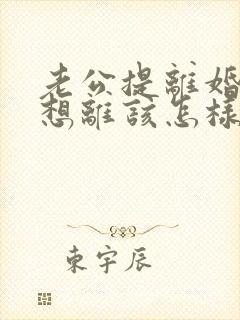 老公提離婚
想離該怎樣
東宇辰